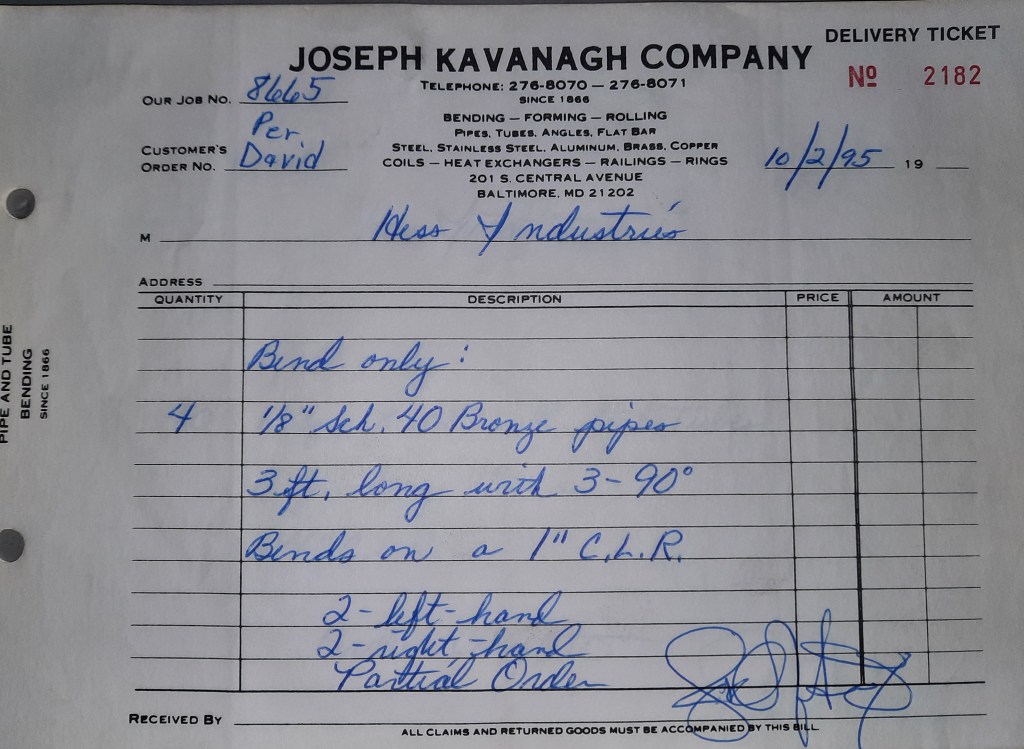 DELIVERY TICKET
JOSEPH KAVANAGH COMPANY
Nº 2182
TELEPHONE: 276-8070 — 276-8071
SINCE 1866
OUR JOB NO. 8665
BENDING — FORMING — ROLLING
PIPES, TUBES, ANGLES, FLAT BAR
STEEL, STAINLESS STEEL, ALUMINUM, BRASS, COPPER
COILS — HEAT EXCHANGERS — RAILINGS — RINGS
201 S. CENTRAL AVENUE
BALTIMORE, MD 21202
Per
CUSTOMER'S
ORDER NO. David
10/2/95 19
M Hess Industries
ADDRESS
QUANTITY DESCRIPTION PRICE AMOUNT
Bend only:
4 1/8" Sch. 40 Bronze pipes
3 ft. long with 3-90°
Bends on a 1" C.L.R.
2-left-hand
2-right-hand
Partial Order
RECEIVED BY
ALL CLAIMS AND RETURNED GOODS MUST BE ACCOMPANIED BY THIS BILL
PIPE AND TUBE
BENDING
SINCE 1866